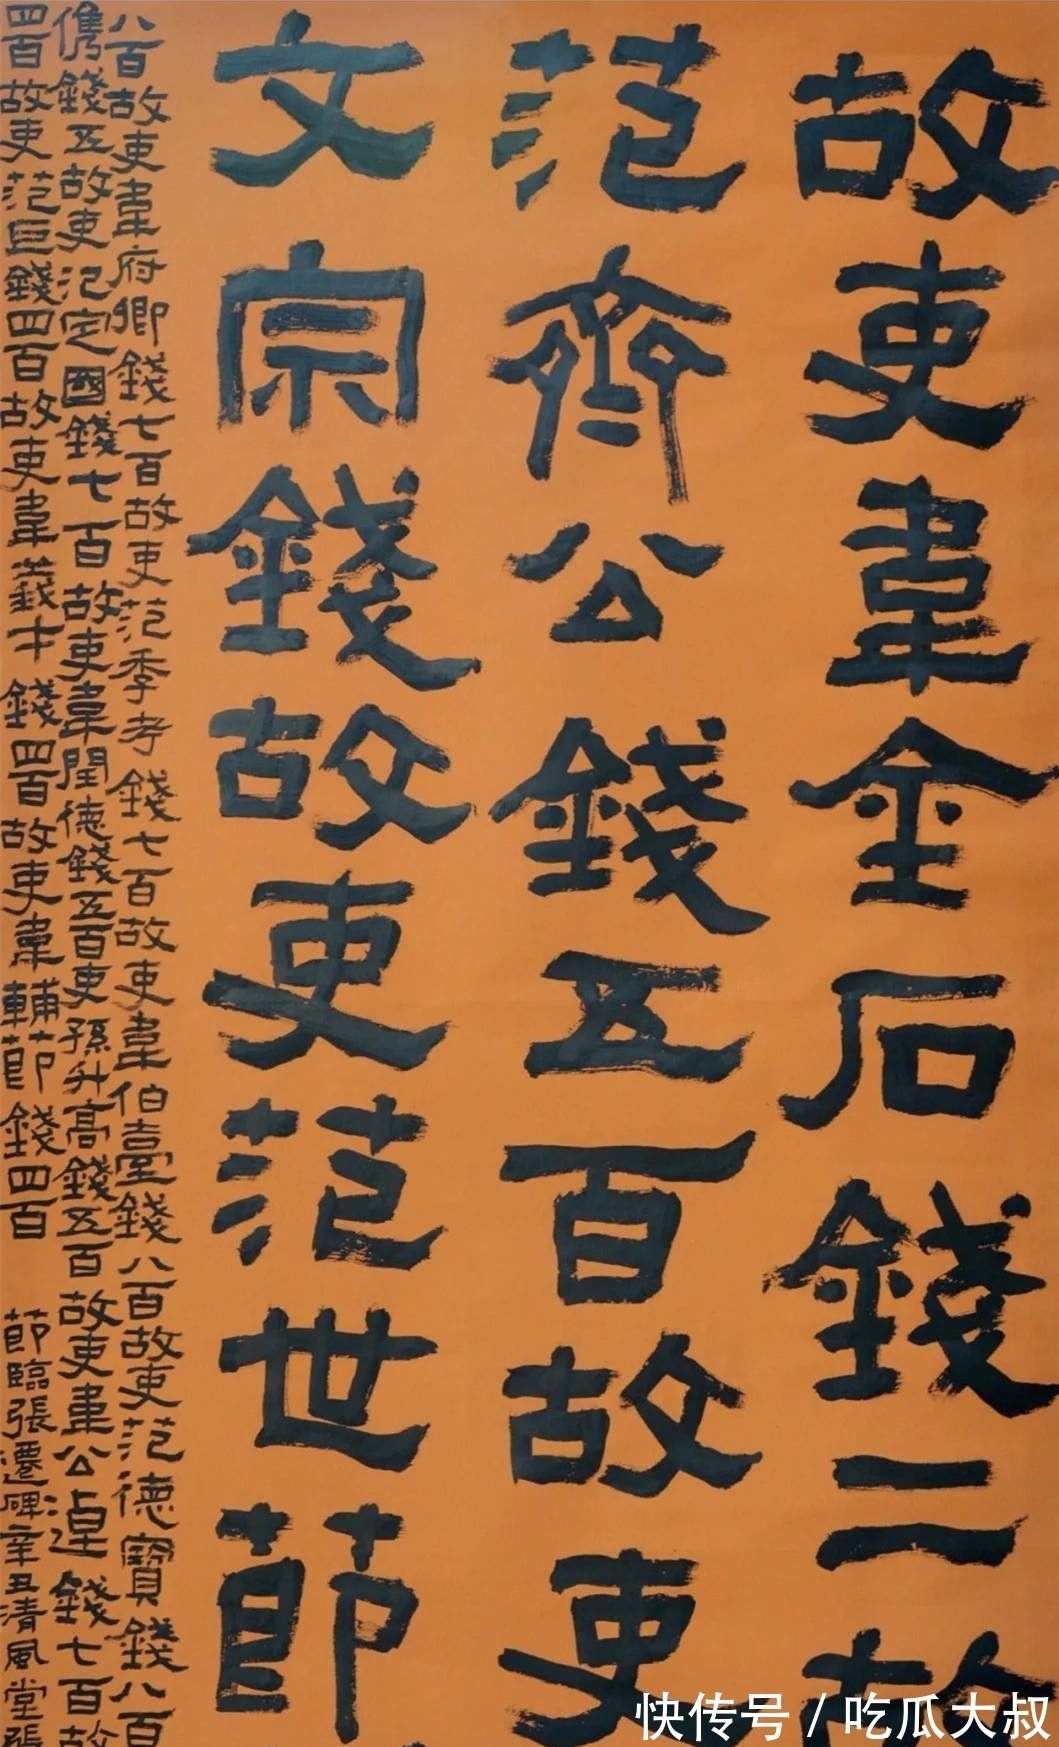 故吏韋金石錢二故
范齊公錢五百故吏
文宗錢故吏范世節
八百故吏韋府卿錢七百故吏范季考錢七百故吏韋伯臺錢八百故吏范德寶錢八百
儁錢五故吏氾定國錢七百故吏韋閏德錢五百吏孫升高錢五百故吏韋公逴錢七百故
四百故吏范巨錢四百故吏韋義才錢四百故吏韋輔節錢四百
節臨張遷碑辛丑清風堂張
快传号/吃瓜大叔